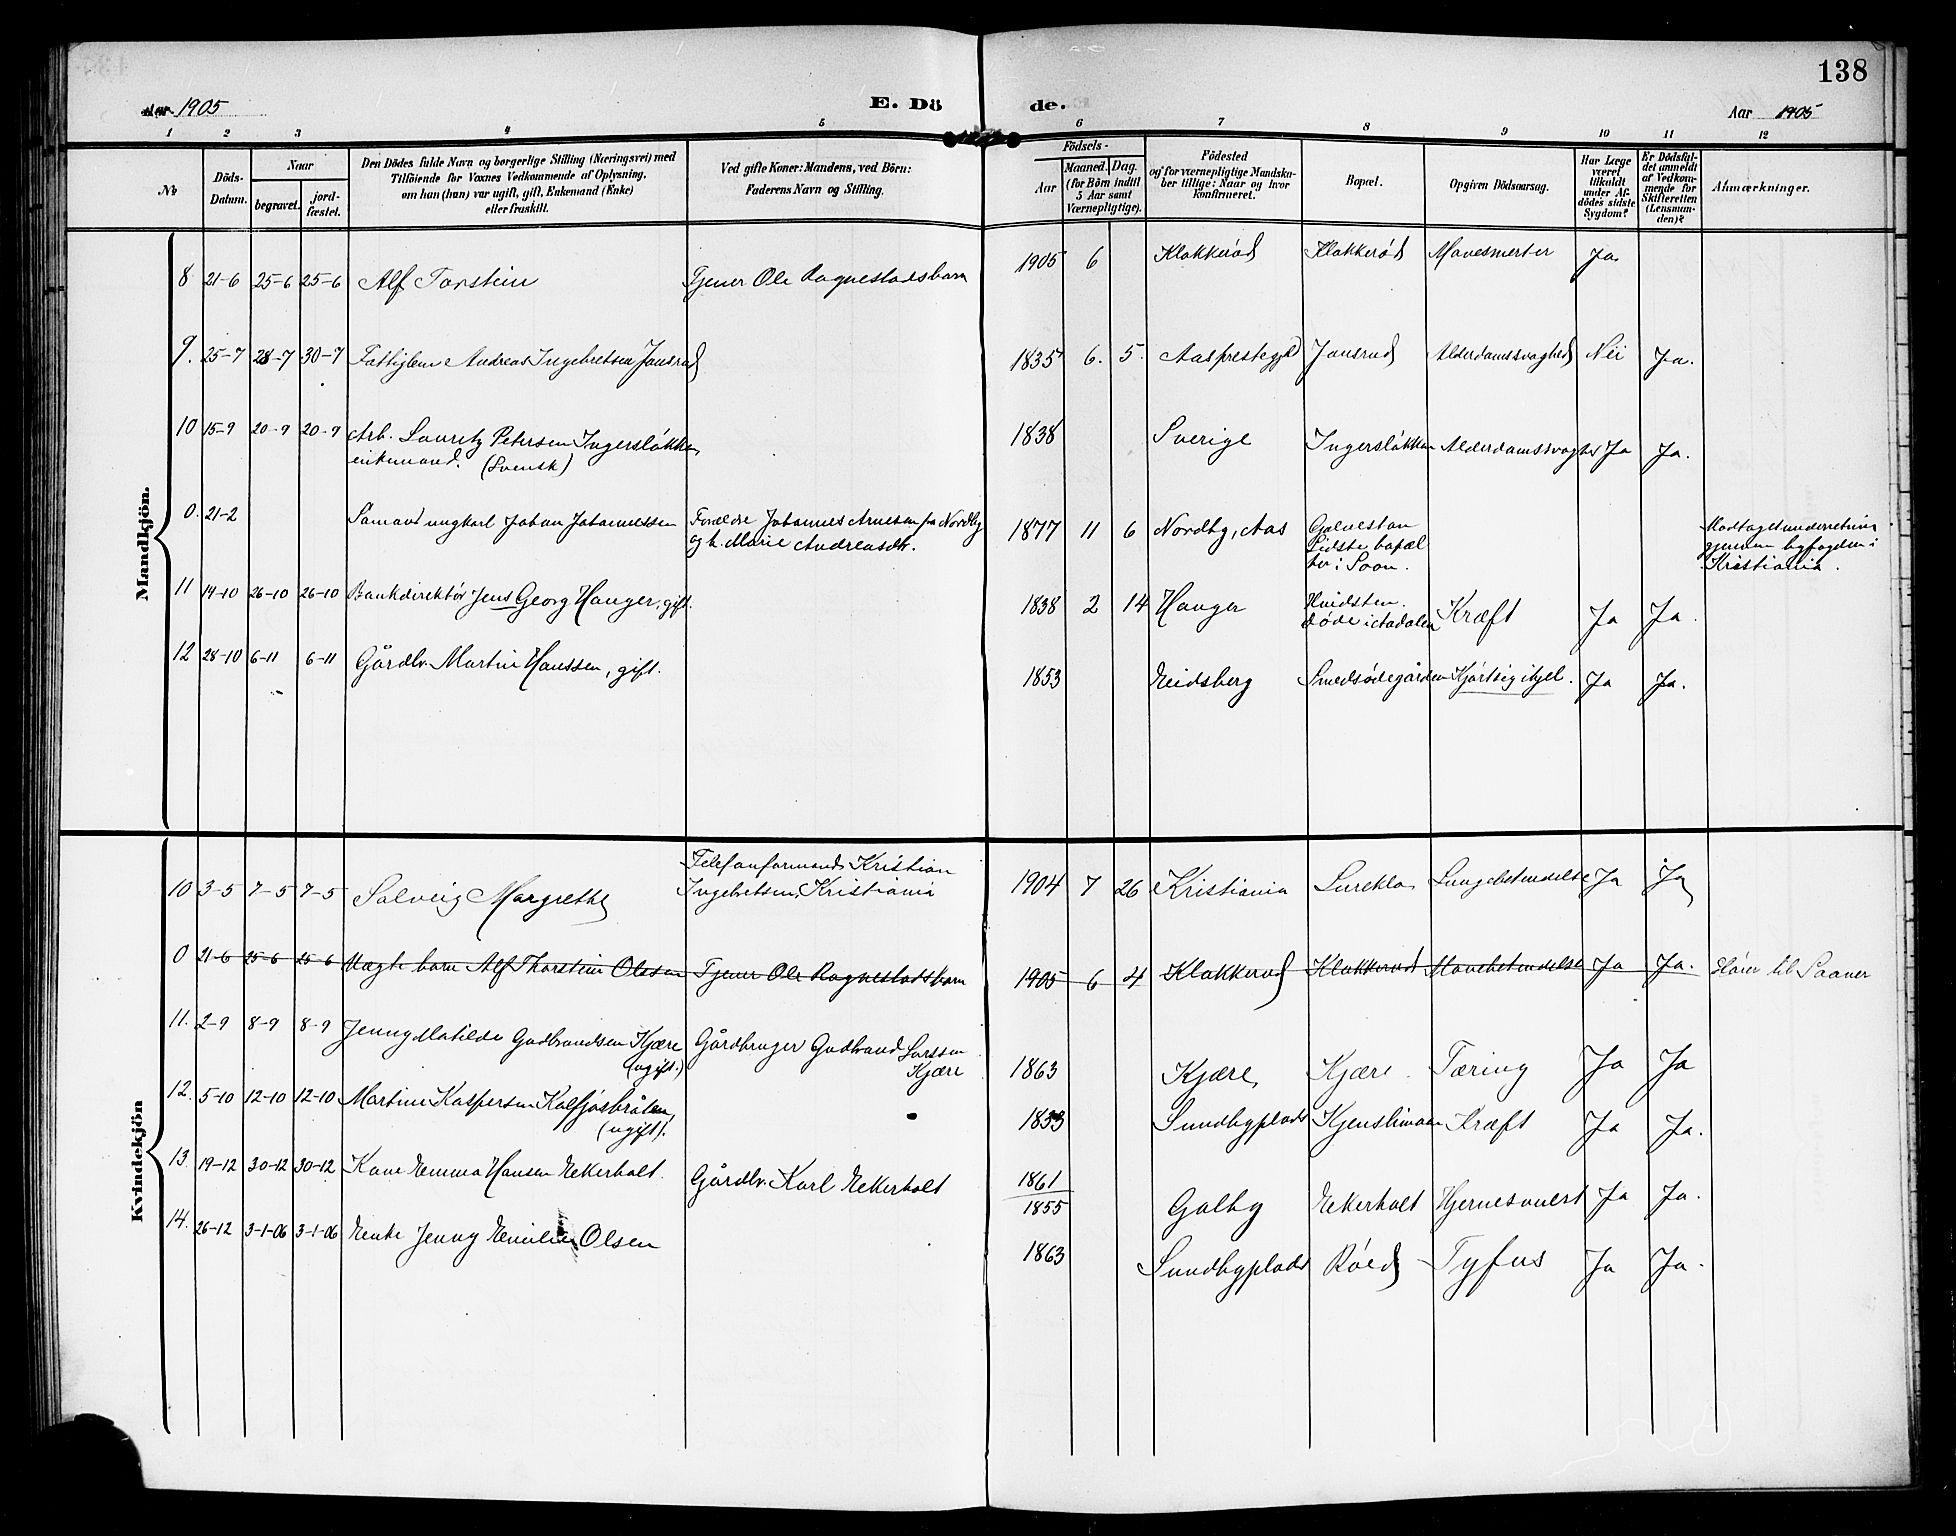 138
Aar 1905
E. Dö
de.
Aar 1905
1 2 3 4 5 6 7 8 9 10 11 12
No
Döds-
Datum.
Naar
begravet.
jord-
fæstet.
Den Dödes fulde Navn og borgerlige Stilling (Næringsvei) med
Tilföiende for Voxnes Vedkommende af Oplysning,
om han (hun) var ugift, gift, Enkemand (Enke)
eller fraskilt.
Ved gifte Koner: Mandens, ved Börn:
Faderens Navn og Stilling.
Födsels-
Aar
Maaned. Dag.
(for Börn indtil
5 Aar samt
Værnepligtige).
Födested
og for værnepligtige Mandska-
ber tillige: Naar og hvor
konfirmeret.
Bopæl.
Opgiven Dödsaarsag.
Har Læge
været
tilkaldt
under Af-
dödes sidste
Sygdom?
Er Dödsfal-
det anmeldt
af Vedkom-
mende for
Skifteretten
(Lensman-
den)?
Anmærkninger.
Mandkjön.
8 21-6 25-6 25-6 Alf Torstein Tjener Ole Ragnestads barn 1905 6 Klokkerød Klokkerød Mavesmerter Ja
9. 25-7 28-7 30-7 Fattiglem Andreas Ingebretsen Jonsrud 1835 6. 5. Aas prestegjld Jonsrud Alderdomssvaghed Nei Ja.
10 15-9 20-9 20-9 Arb. Lauritz Petersen Ingersløkken 1838 Sverige Ingersløkken Alderdomssvaghed Ja Ja.
enkemand. (Svensk)
0. 21-2 Sømand ungkarl Johan Johannessen Forældre Johannes Arnesen fra Nordby 1877 11 6 Nordby, Aas Galvestan
og h. Marie Andreasdtr.
Sidste bopæl
her i Soon.
Modtaget underretning
gjennem byfogden i
Kristiania.
11 14-10 26-10 26-10 Bankdirektør Jens Georg Hauger, gift. 1838 2 14 Hauger Hvidsten. Kræft Ja Ja.
døde i Aadalen
12 28-10 6-11 6-11 Gårdbr. Martin Hanssen, gift. 1853 Eidsberg Smedsødegården Kjørt sig ihjel. Ja Ja.
Kvindekjön
10 3-5 7-5 7-5 Solveig Margrethe Telefonformand Kristian
Ingebretsen, Kristiania 1904 7 26 Kristiania Lurekla Lungebetendelse Ja Ja
0 21-6 25-6 25-6 Uægte barn Alf Thorstein Olssen Tjener Ole Ragnestads barn 1905 6 4 Klokkerud Klokkerud Mavebetendelse Ja Ja. Hører til Saaner
11. 2-9 8-9 8-9 Jenny Matilde Gudbrandsen Kjære Gårdbruger Gudbrand Larssen
(ugift.) Kjære 1863 Kjære, Kjære. Tæring Ja Ja
12. 5-10 12-10 12-10 Martine Kaspersen Kolfjøsbråten, 1853 Sundbyplads Kræft Ja Ja.
(ugift).
13. 19-12 30-12 30-12 Kone Emma Hansen Ekerholt. Gårdbr. Karl Ekerholt 1861
1855 Galby Ekerholt Ja Ja.
14. 26-12 3-1-06 3-1-06 Enke Jenny Emilie Olsen 1863 Sundbyplads Røed Tyfus Ja Ja.